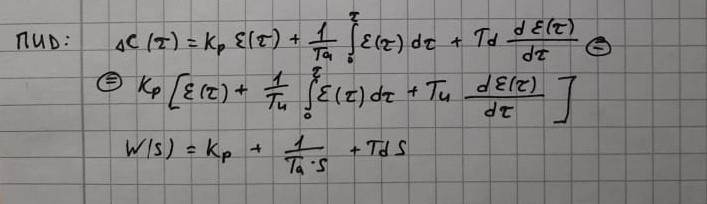 ПИД: ΔC(τ) = Kp ε(τ) + 1/Ta ∫₀^τ ε(τ) dτ + Td dε(τ)/dτ ⊜
⊜ Kp [ε(τ) + 1/Tи ∫₀^τ ε(τ) dτ + Tи dε(τ)/dτ]
W(s) = Kp + 1/(Ta·s) + Td s